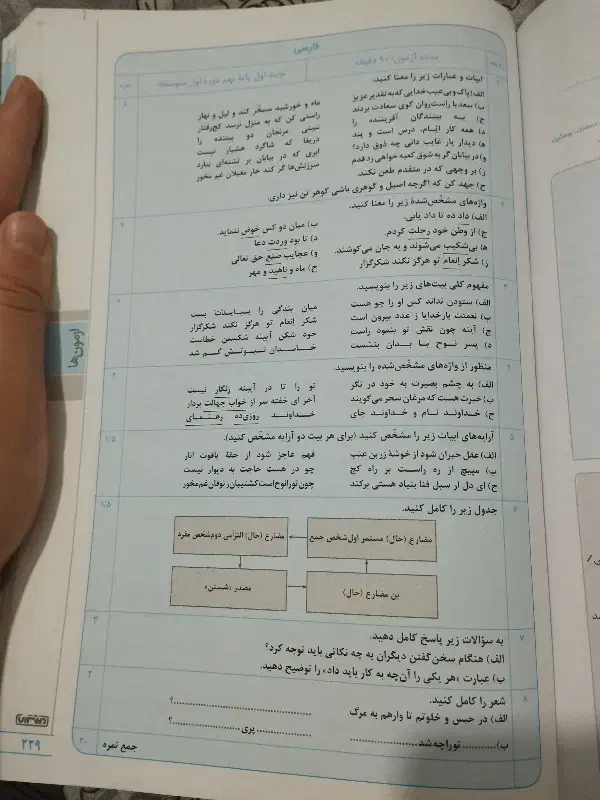 فارسی
ردیف
مدت آزمون: ۹۰ دقیقه
نوبت اول پایهٔ نهم دورهٔ اول متوسطه
نمره
۱
ابیات و عبارات زیر را معنا کنید.
الف) پاک و بی‌عیب خدایی که به تقدیر عزیز
ماه و خورشید مسخّر کند و لیل و نهار
ب) سعدیا راست‌روان گوی سعادت بردند
راستی کن که به منزل نرسد کج‌رفتار
ج) به بینندگان آفریننده را
نبینی مرنجان دو بیننده را
د) همه کار ایّام، درس است و پند
دریغا که شاگرد هشیار نیست
ه) دیدار یار غایب دانی چه ذوق دارد؟
ابری که در بیابان بر تشنه‌ای ببارد
و) در بیابان گر به شوق کعبه خواهی زد قدم
سرزنش‌ها گر کند خار مغیلان غم مخور
ز) بر وجهی که در متقدم طعن نکند.
ح) جهد کن که اگرچه اصیل و گوهری باشی گوهر تن نیز داری.
۲
واژه‌های مشخّص‌شدهٔ زیر را معنا کنید.
الف) داد ده تا داد یابی.
ب) میان دو کس خوض ننماید.
ج) از وطن خود رحلت کردم.
د) تا بود وردت دعا
ه) بی‌شکیب می‌شوند و به جان می‌کوشند.
و) عجایب صنع حق تعالی
ز) شکر انعام تو هرگز نکند شکرگزار
ح) ماه و ناهید و مهر
۳
مفهوم کلی بیت‌های زیر را بنویسید.
الف) ستودن نداند کس او را چو هست
میان بندگی را ببایدت بست
ب) نعمتت بارخدایا ز عدد بیرون است
شکر انعام تو هرگز نکند شکرگزار
ج) آینه چون نقش تو بنمود راست
خود شکن آیینه شکستن خطاست
د) پسر نوح با بدان بنشست
خاندان نبوتش گم شد
۴
منظور از واژه‌های مشخّص‌شده را بنویسید.
الف) به چشم بصیرت به خود در نگر
تو را تا در آیینه زنگار نیست
ب) خبرت هست که مرغان سحر می‌گویند
آخر ای خفته سر از خواب جهالت بردار
ج) خداوند نام و خداوند جای
خداوند روزی‌ده رهنمای
۵
۱/۵
آرایه‌های ابیات زیر را مشخّص کنید (برای هر بیت دو آرایه مشخّص کنید).
الف) عقل حیران شود از خوشهٔ زرین عنب
فهم عاجز شود از حقهٔ یاقوت انار
ب) مپیچ از ره راست بر راه کج
چو در هست حاجت به دیوار نیست
ج) ای دل ار سیل فنا بنیاد هستی برکند
چون تو را نوح است کشتیبان ز توفان غم مخور
۶
۱/۵
جدول زیر را کامل کنید.
مضارع (حال) مستمر اول‌شخص جمع
مضارع (حال) التزامی دوم‌شخص مفرد
بن مضارع (حال)
مصدر «شستن»
۷
به سؤالات زیر پاسخ کامل دهید.
الف) هنگام سخن‌گفتن دیگران به چه نکاتی باید توجه کرد؟
ب) عبارت «هر یکی را آن‌چه به کار باید داد» را توضیح دهید.
۸
۲
شعر را کامل کنید.
الف) در حبس و خلوتم تا وارهم به مرگ
..............................؟
ب) ........... تو را چه شد ..................
.................. پری ..................؟
۲۰
جمع نمره
آزمون‌ها
۲۲۹